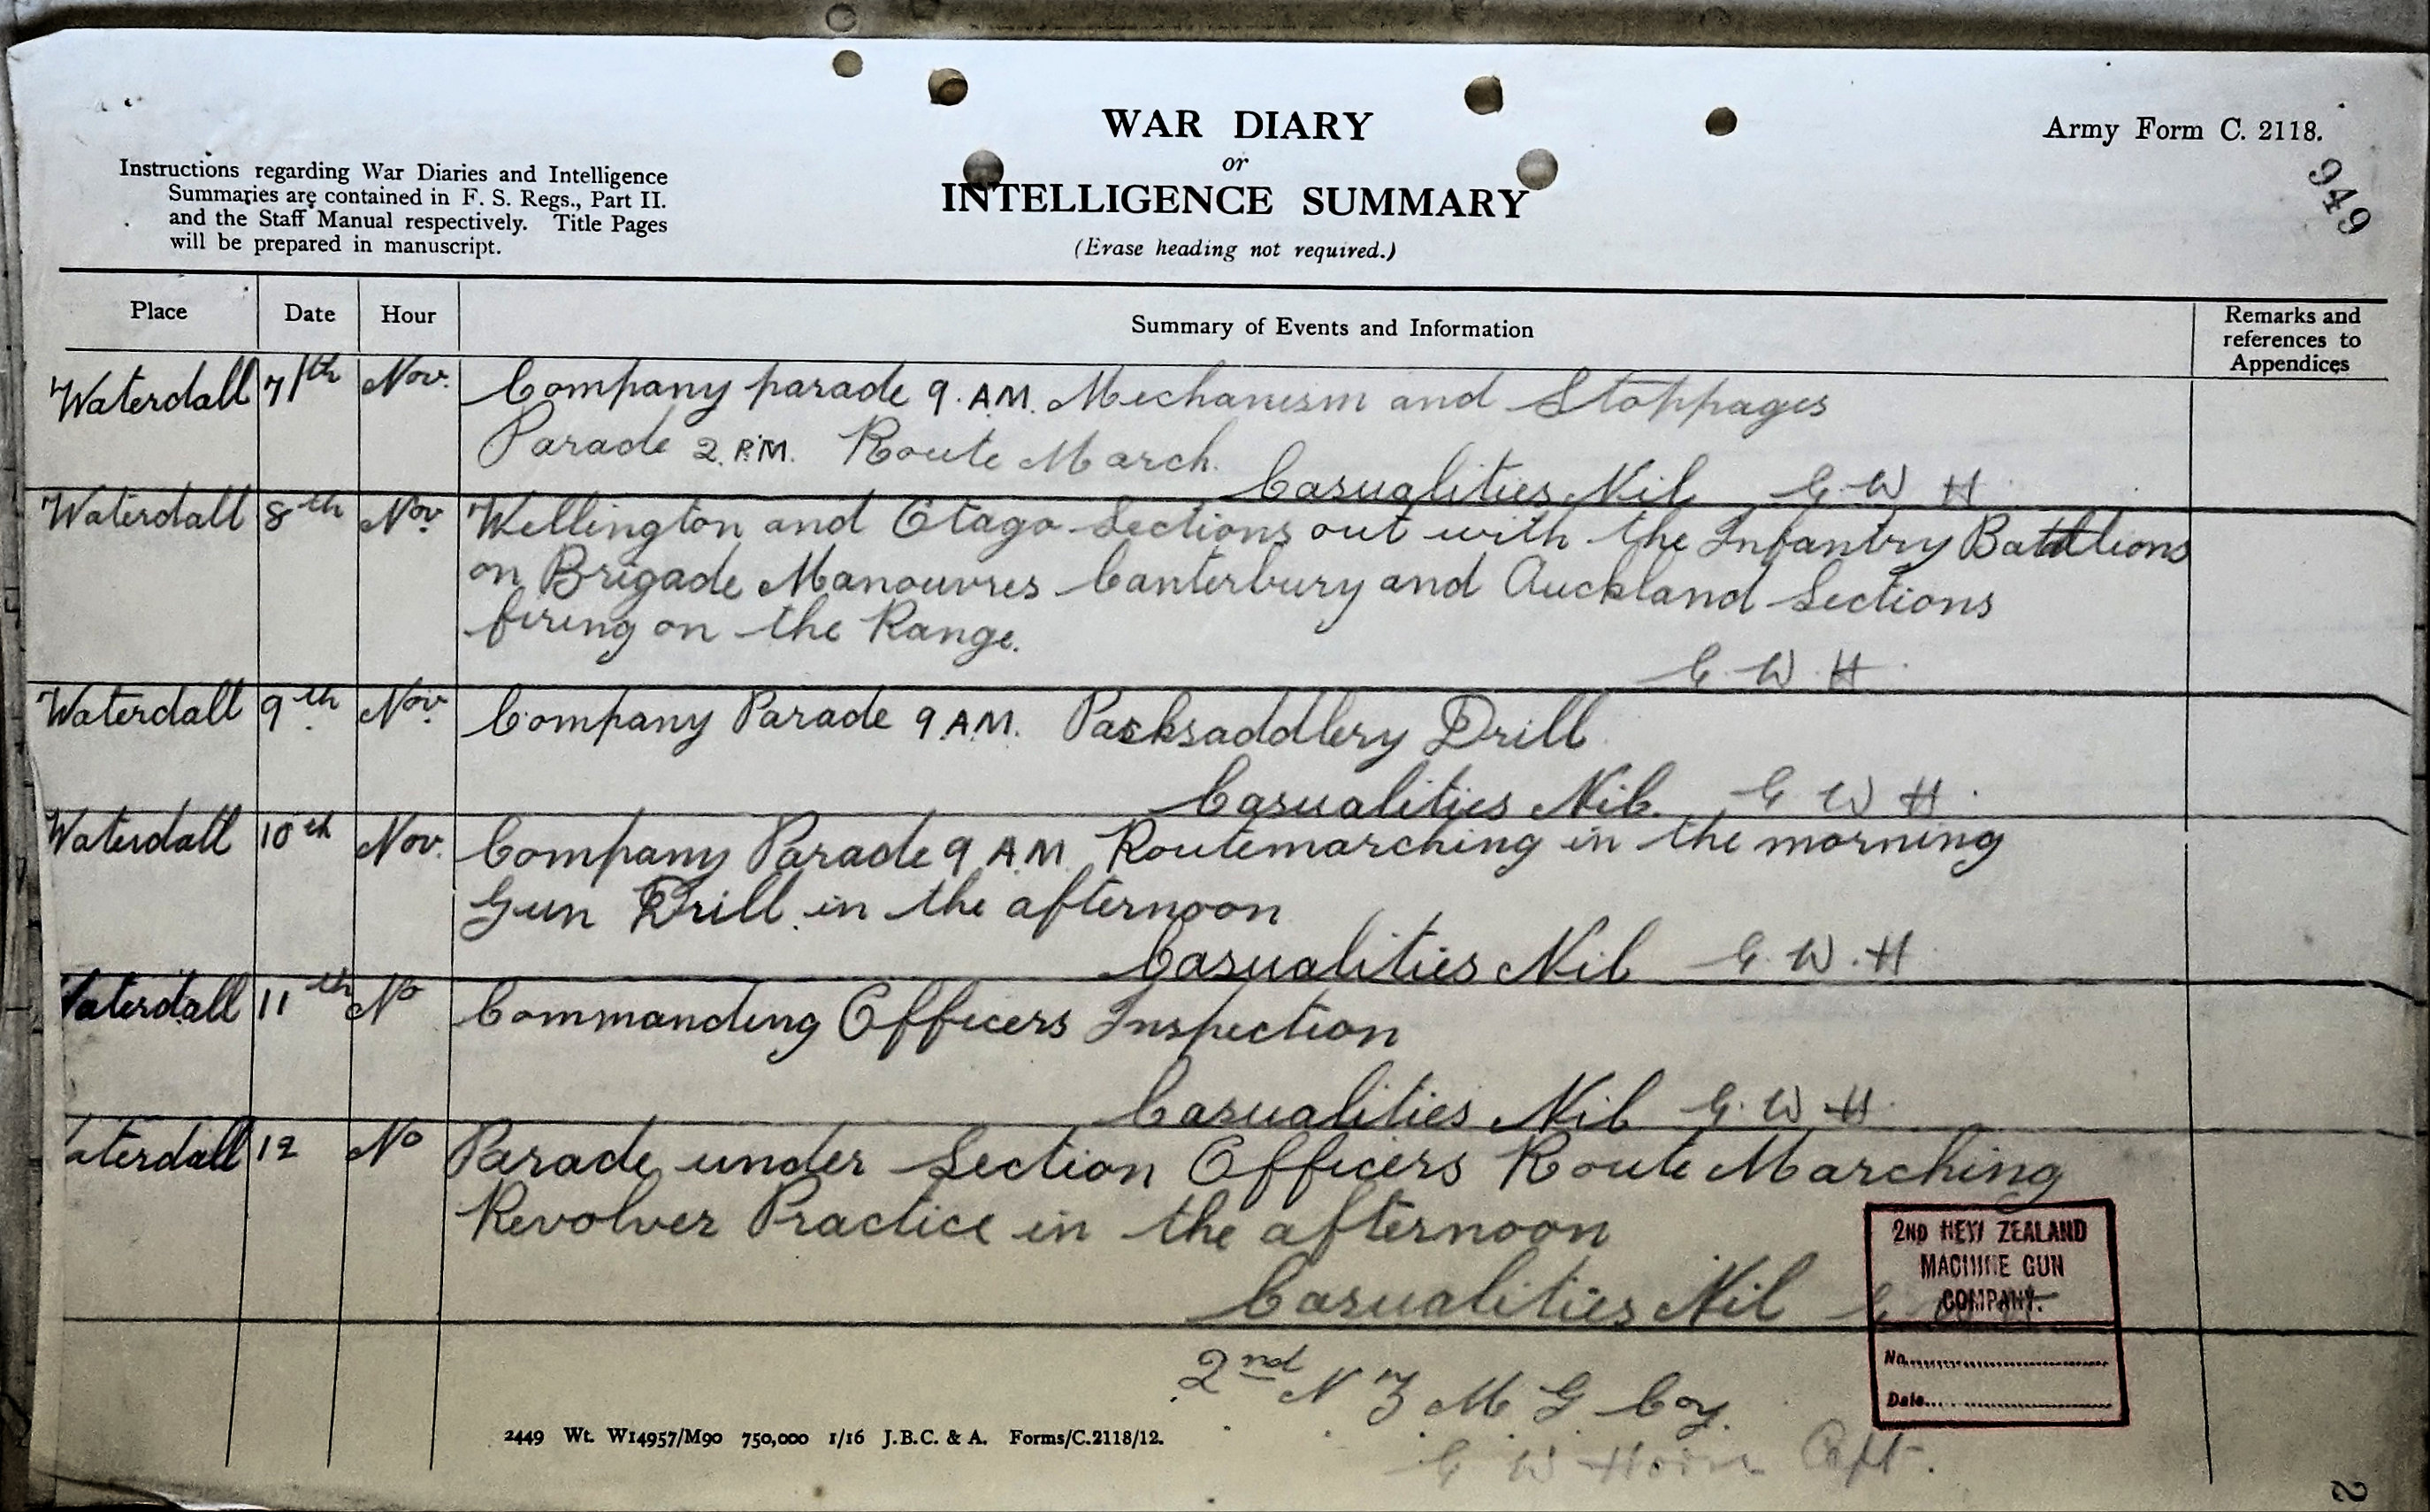 WAR DIARY
or
INTELLIGENCE SUMMARY
(Erase heading not required.)
Army Form C. 2118.
949
Instructions regarding War Diaries and Intelligence
Summaries are contained in F. S. Regs., Part II.
and the Staff Manual respectively. Title Pages
will be prepared in manuscript.
Place Date Hour Summary of Events and Information Remarks and references to Appendices
Waterdall 7/th Nov. Company parade 9. A.M. Mechanism and Stoppages
Parade 2. P.M. Route March.
Casualities Nil G. W H
Waterdall 8th Nov. Wellington and Otago Sections out with the Infantry Battlions
on Brigade Manouvres Canterbury and Auckland Sections
firing on the Range.
G. W. H
Waterdall 9th Nov. Company Parade 9 A.M. Packsaddlery Drill
Casualities Nil. G W H.
Waterdall 10th Nov. Company Parade 9 A.M. Routemarching in the morning
Gun Drill. in the afternoon
Casualities Nil G. W. H
Waterdall 11th No Commanding Officers Inspection
Casualities Nil G. W H.
aterdall 12 No Parade under Section Officers Route Marching
Revolver Practice in the afternoon
Casualities Nil G
2ND NEW ZEALAND
MACHINE GUN
COMPANY.
No.
Date
2nd N Z M G Coy.
G W Capt.
2449 Wt. W14957/M90 750,000 1/16 J.B.C. & A. Forms/C.2118/12.
2